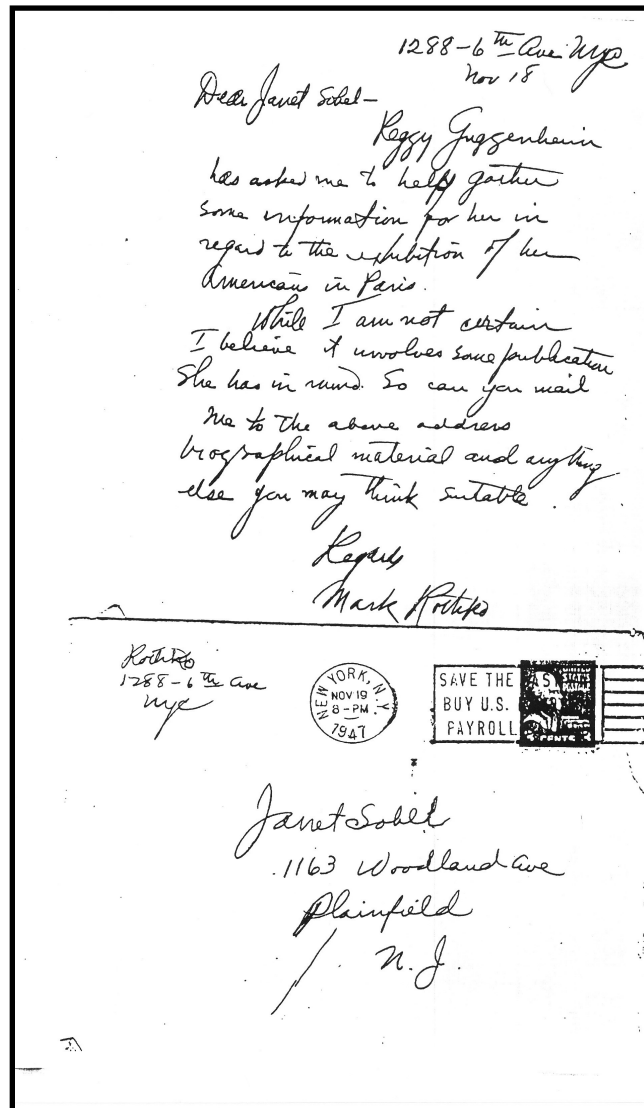 1288-6th Ave NYC
Nov 18
Dear Janet Sobel-
Peggy Guggenheim
has asked me to help gather
some information for her in
regard to the exhibition of her
Americans in Paris.
While I am not certain
I believe it involves some publication
She has in mind. So can you mail
me to the above address
biographical material and anything
else you may think suitable.
Regards
Mark Rothko
Rothko
1288-6th Ave
NYC
NEW YORK, N.Y.
NOV 19
8-PM
1947
SAVE THE EASY
BUY U.S.
PAYROLL
CENTS
Janet Sobel
1163 Woodland Ave
Plainfield
N.J.